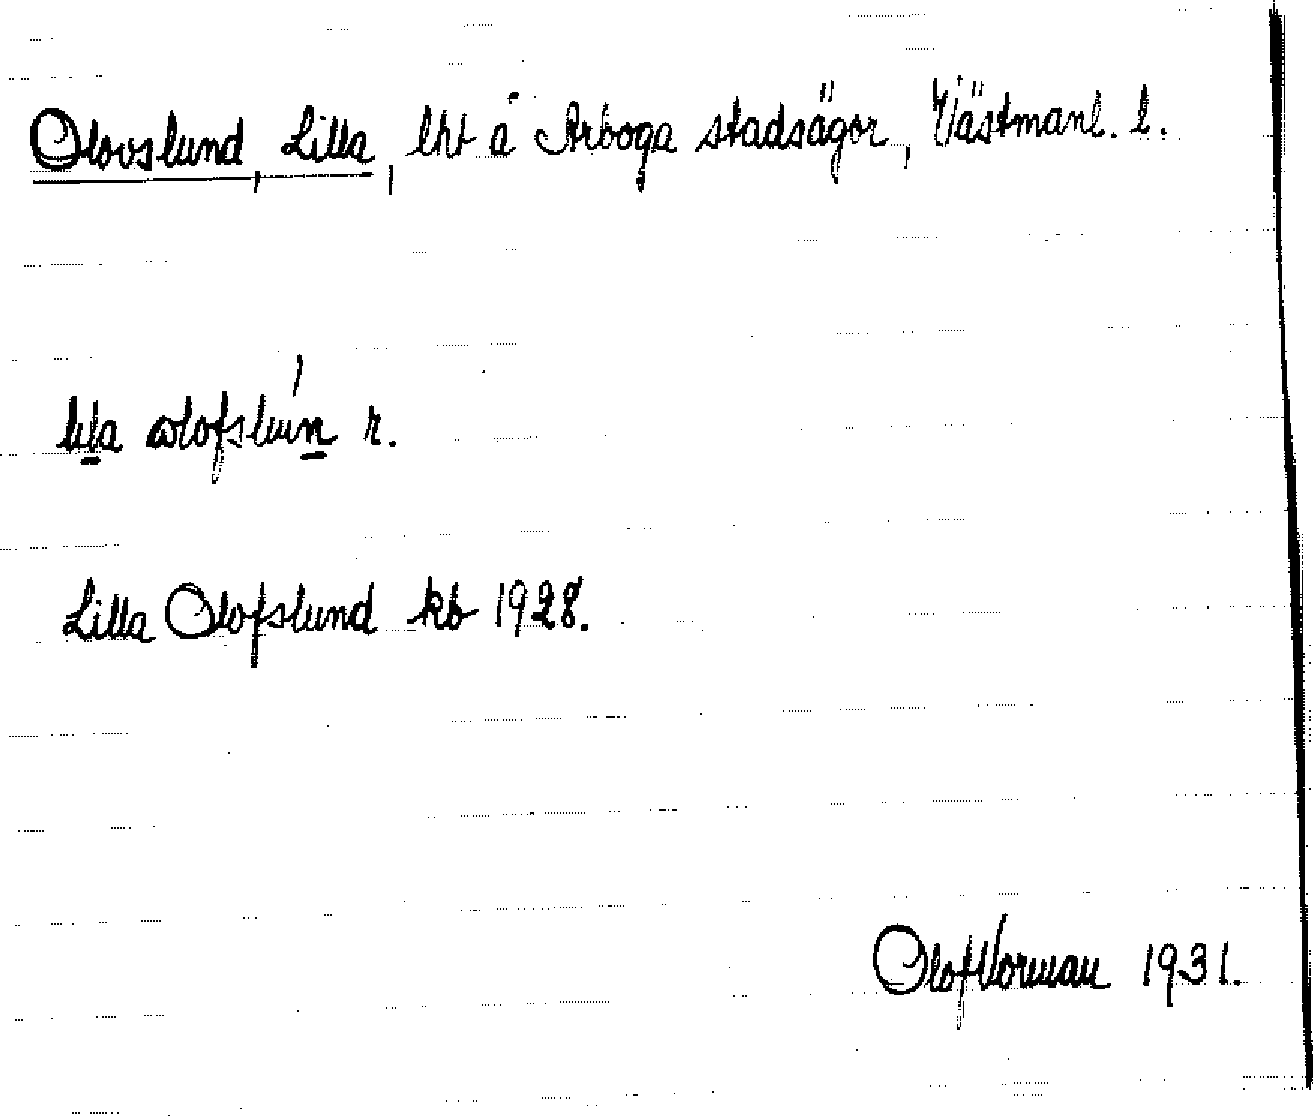 Olovslund, Lilla, lht å Arboga stadsägor, Västmanl. l.
lila olofslun r.
Lilla Olofslund kb 1928.
Olof Vorman 1931.